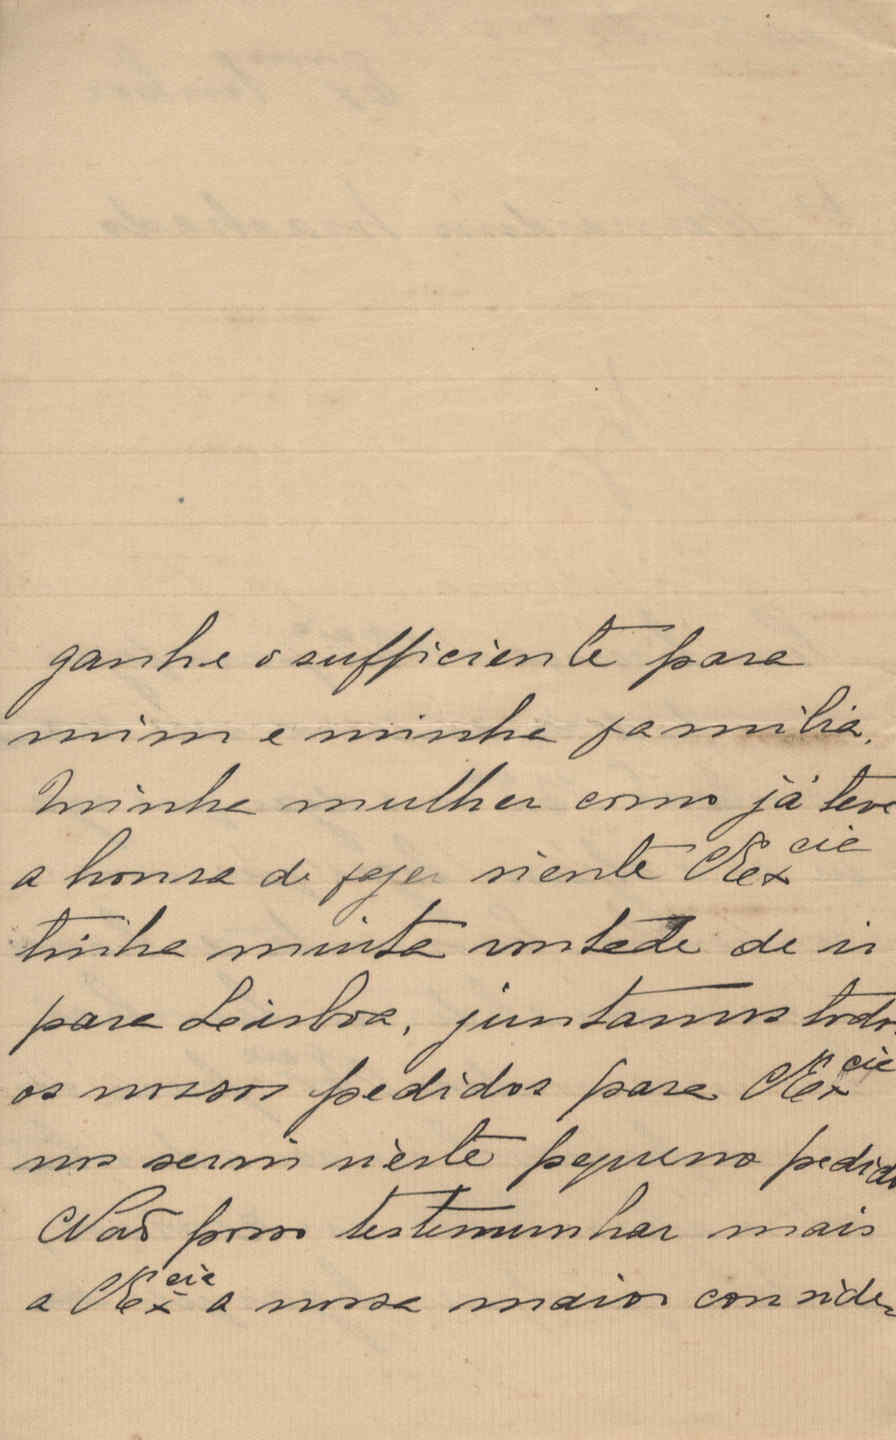 ganhe o sufficiente para
mim e minha familia.
Minha mulher como já teve
a honra de fazer siente V Ex cie
tinha muita vontade de ir
para Leisboa, juntamos todos
os nossos pedidos para V Ex cie
nos servir n'este pequeno pedido
Naõ posso testemunhar mais
a V Ex cie a nossa maior consider